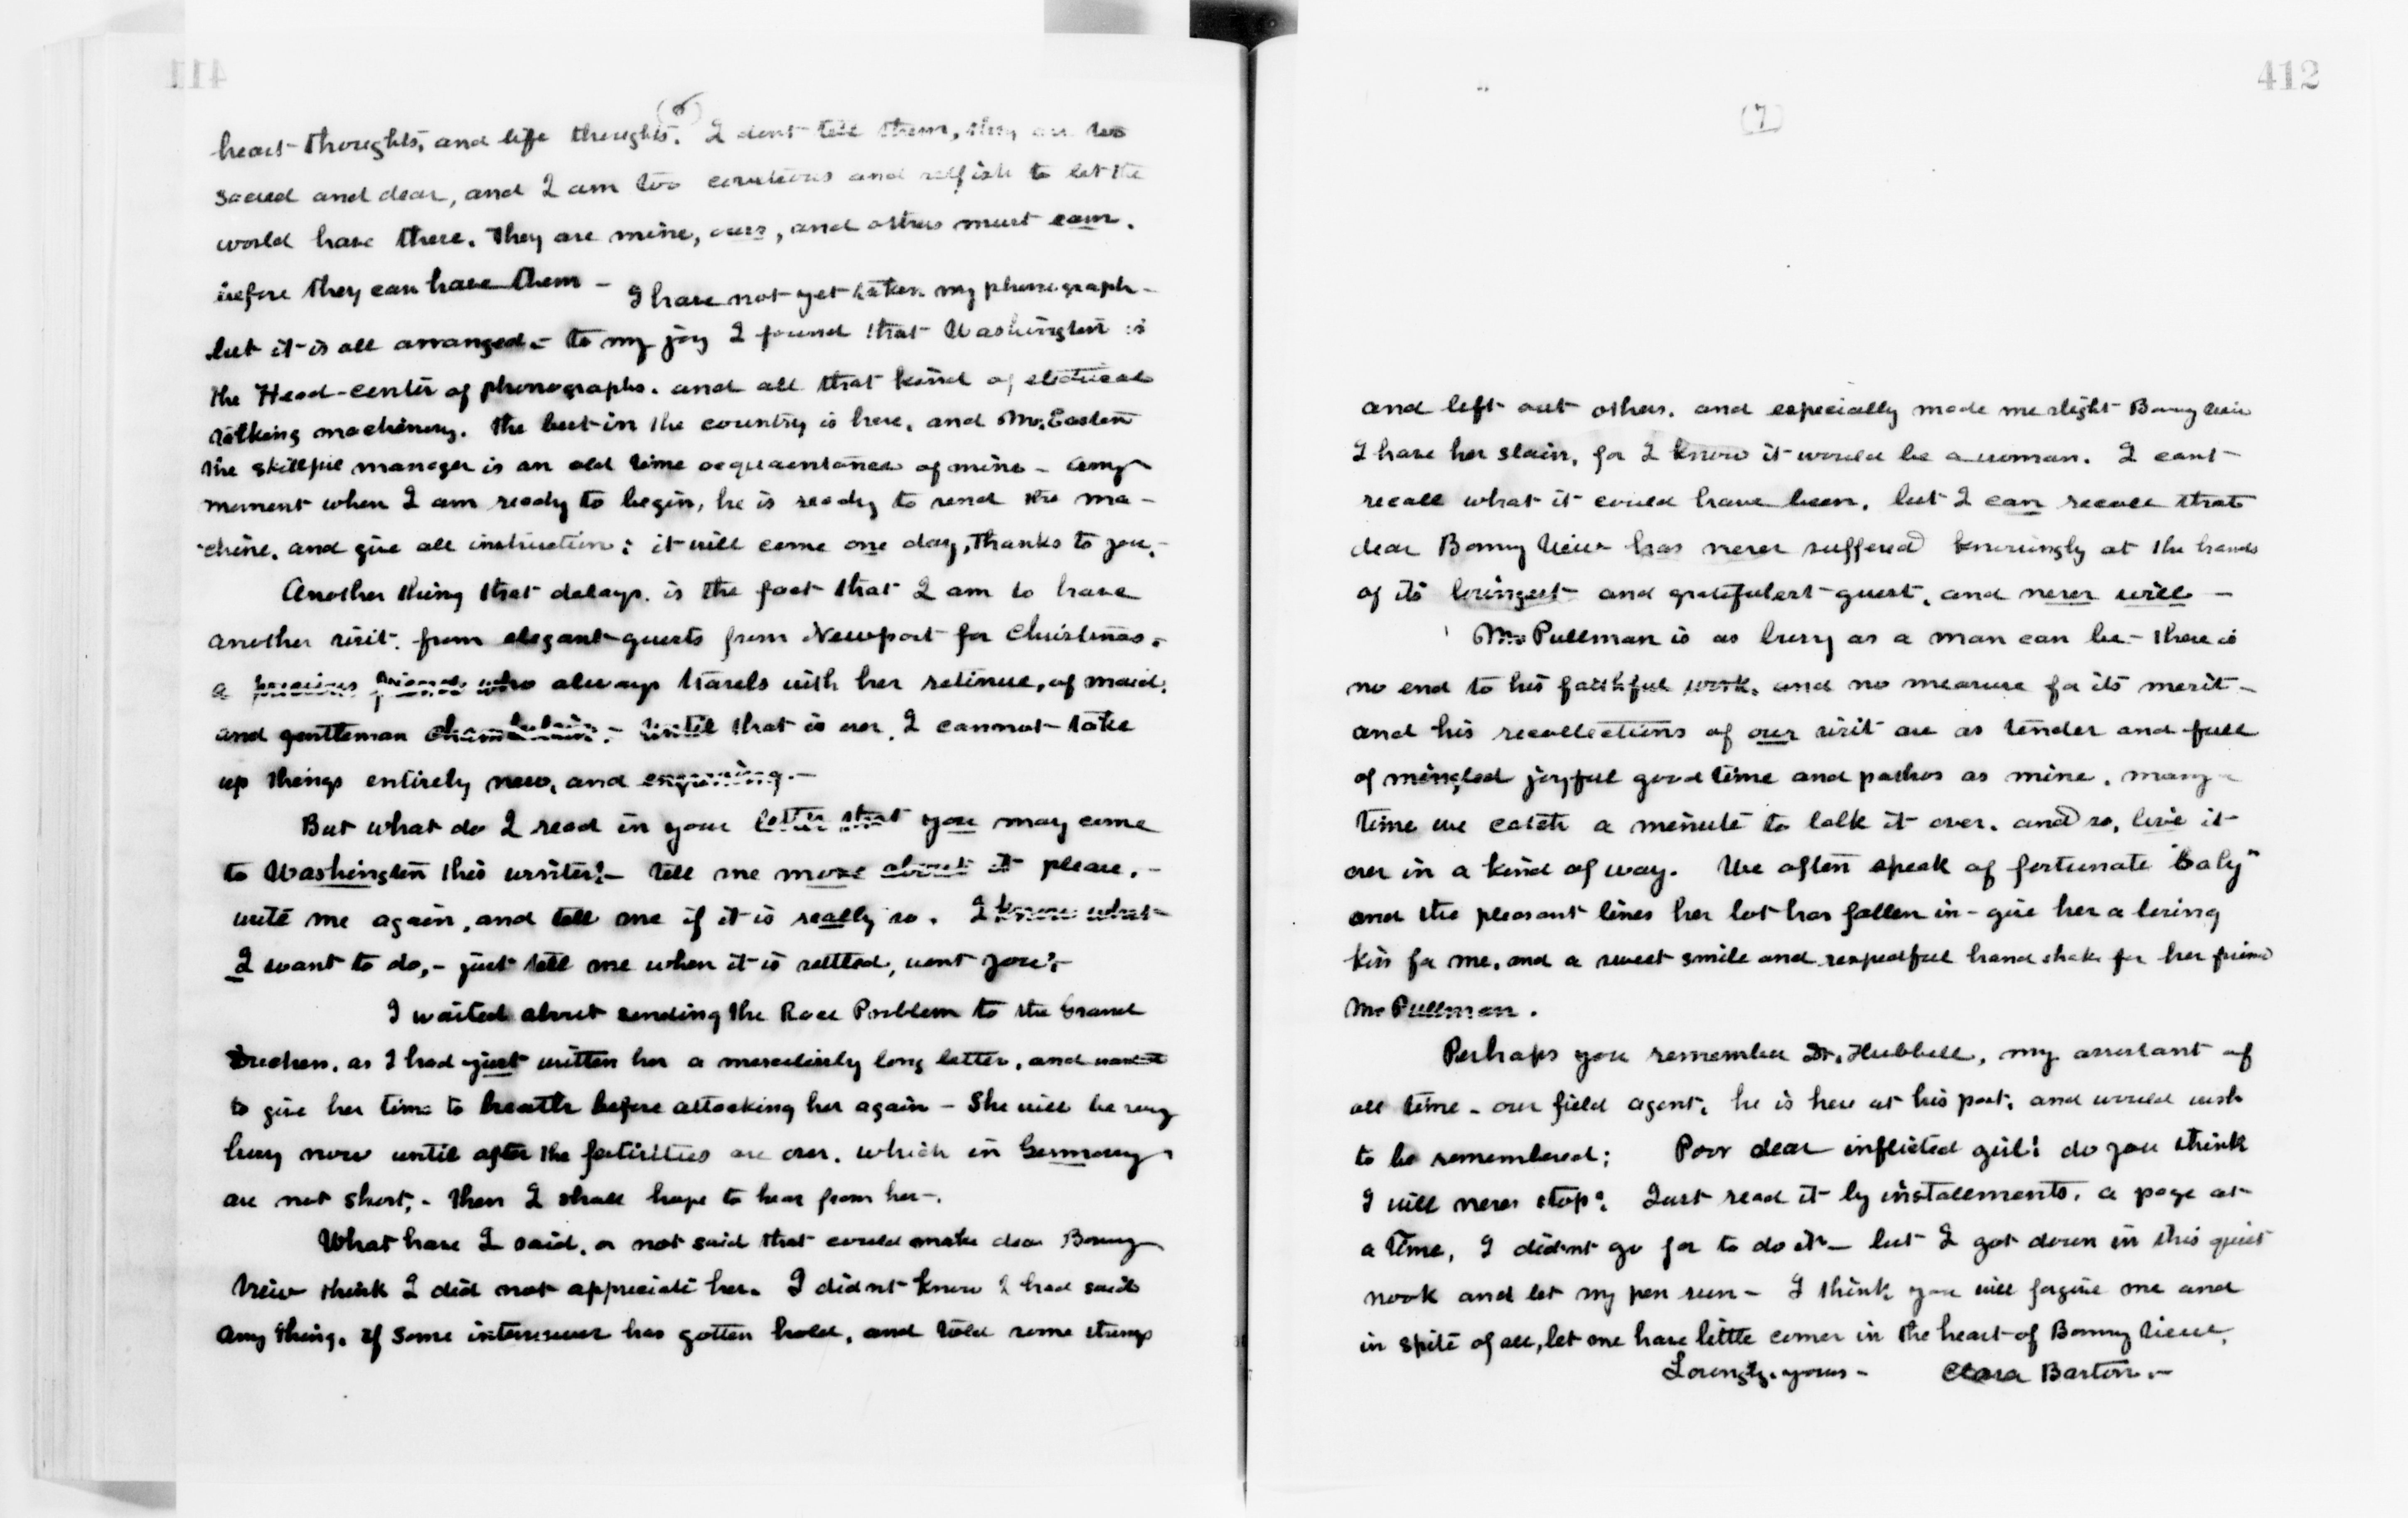 411
(6)
heart-thoughts, and life thoughts. I dont tell them, they are too
sacred and dear, and I am too covetous and selfish to let the
world have these. They are mine, ours, and others must earn.
before they can have them - I have not yet taken my phonograph -
but it is all arranged. - to my joy I found that Washington is
the Head-center of phonographs. and all that kind of electrical
talking machinery. the best in the country is here, and Mr. Easton
the skillful manager is an old time acquaintance of mine - any
moment when I am ready to begin, he is ready to send the ma -
chine, and give all instruction; it will come one day, Thanks to you. -
Another thing that delays. is the fact that I am to have
another visit. from elegant guests from Newport for Christmas.
a precious friend who always travels with her retinue, of maid,
and gentleman chamberlain. - until that is over, I cannot take
up things entirely new, and engrossing. -
But what do I read in your letter that you may come
to Washington this winter? - tell me more about it please. -
write me again, and tell me if it is really so. I know what
I want to do, - just tell me when it is settled, wont you? -
I waited about sending the Race Problem to the Grand
Duchess, as I had just written her a mercilessly long letter, and wanted
to give her time to breathe before attacking her again - She will be very
busy now until after the festivities are over. which in Germany
are not short, - then I shall hope to hear from her -.
What have I said, or not said that could make dear Bonny
View think I did not appreciate her. I didnt know I had said
any thing. if some interviewer has gotten hold, and told some things
412
(7)
and left out others. and especially made me slight Bonny View
I have her slain, for I know it would be a woman. I cant
recall what it could have been, but I can recall that
dear Bonny View has never suffered knowingly at the hands
of its lovingest and gratefulest guest, and never will -
Mr Pullman is as busy as a man can be - there is
no end to his faithful work, and no measure for its merit -
and his recollections of our visit are as tender and full
of mingled joyful good time and pathos as mine. many a
time we catch a minute to talk it over. and so, live it
over in a kind of way. We often speak of fortunate "baby"
and the pleasant lines her lot has fallen in - give her a loving
kiss for me, and a sweet smile and respectful hand shake for her friend
Mr Pullman.
Perhaps you remember Dr. Hubbell, my assistant of
all time - our field agent, he is here at his post, and would wish
to be remembered; Poor dear inflicted girl! do you think
I will never stop? Just read it by installments, a page at
a time, I didnt go for to do it - but I got down in this quiet
nook and let my pen run - I think you will forgive me and
in spite of all, let me have little corner in the heart of Bonny View.
Lovingly yours - Clara Barton. -